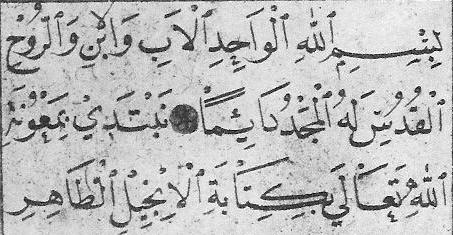 بِسْمِ ٱللّٰهِ ٱلْوَاحِدِ ٱلْاَبِ وَٱلِابْنِ وَٱلرُّوْحِ
ٱلْقُدُسِ لَهُ ٱلْمَجْدُ دَايِمًا ● نَبْتَدِيْ بِمَعُوْنَةِ
ٱللّٰهِ تَعَالَي بِكِتَابَةِ ٱلْاِنْجِيْلِ ٱلْطَاهِرِ